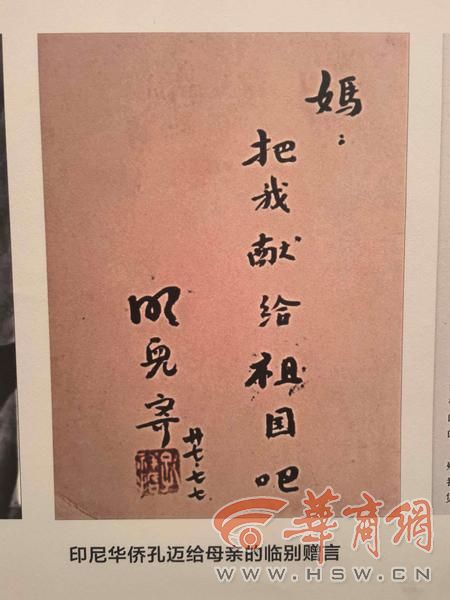 媽：
把我献给祖国吧
明兒寄
廿七·七·七
印尼华侨孔迈给母亲的临别赠言
華商網
WWW.HSW.CN